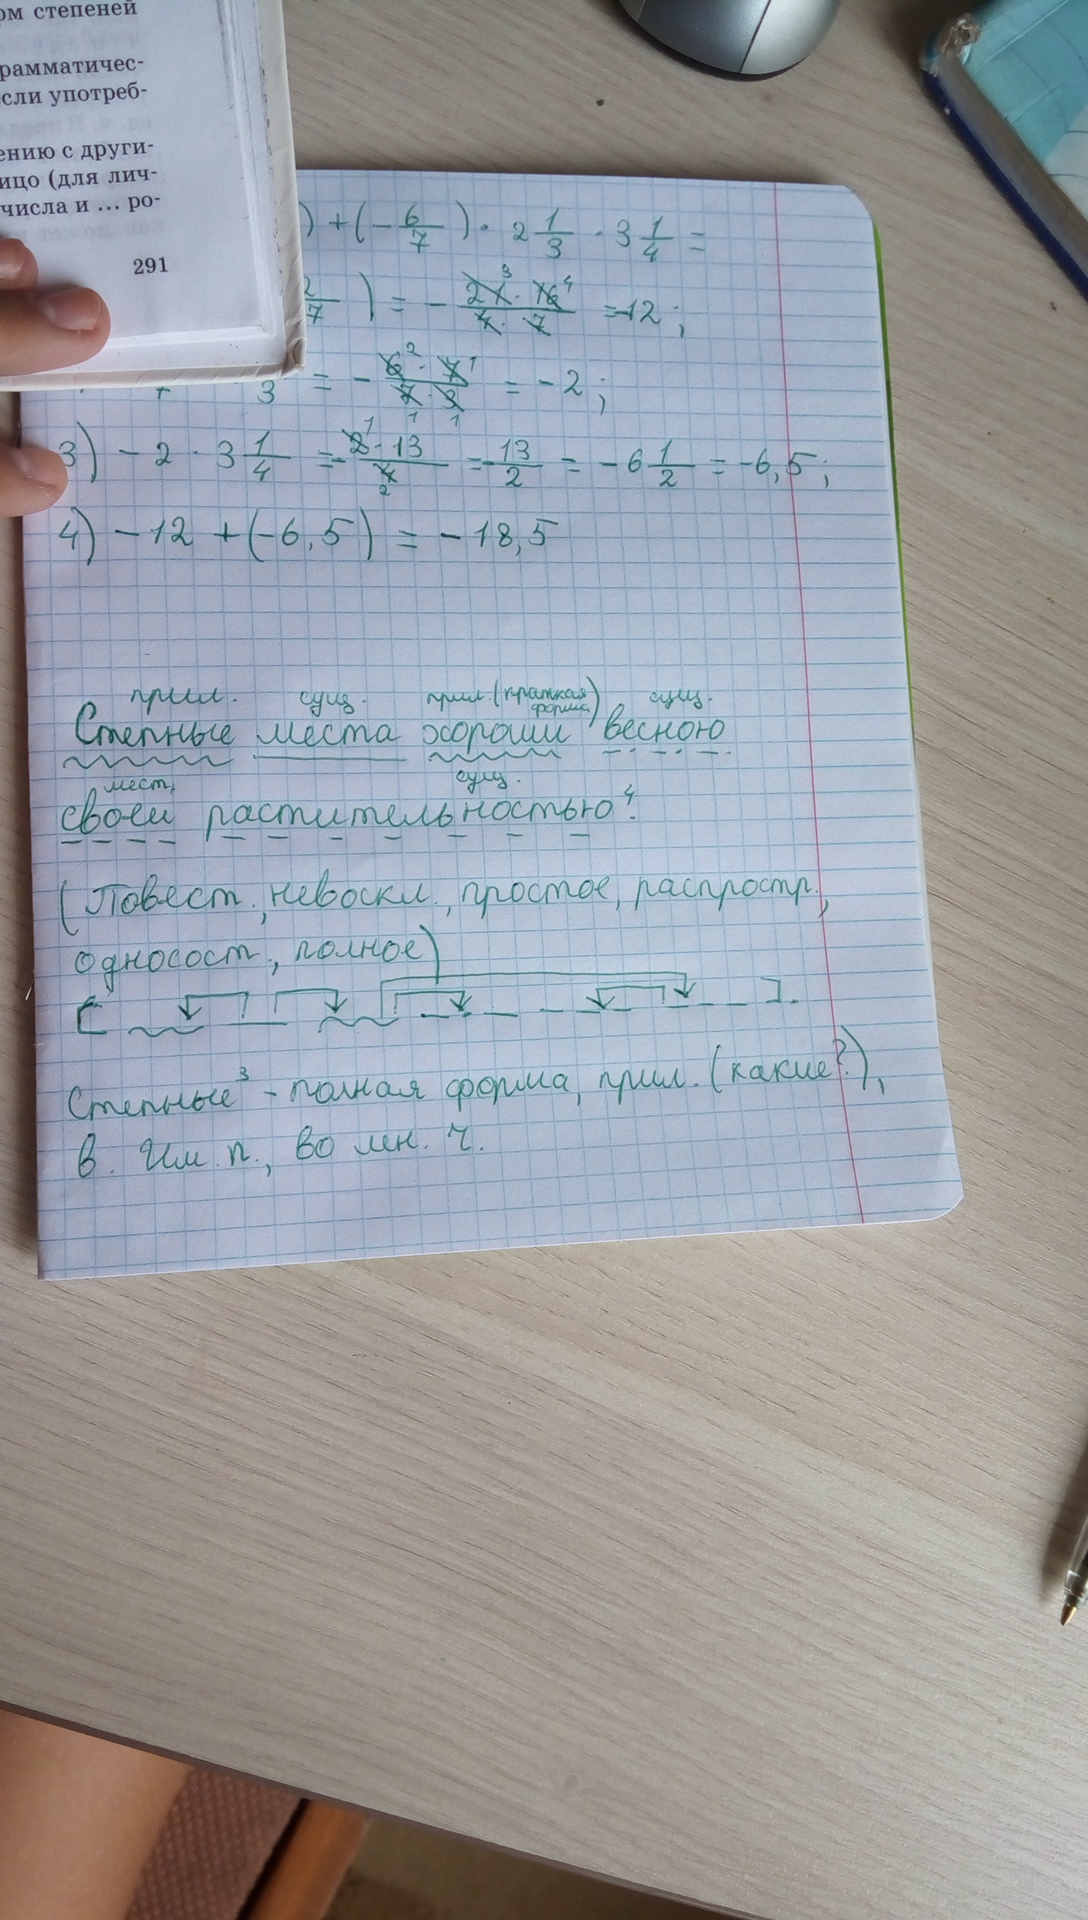 ом степеней
рамматичес-
сли употреб-
ению с други-
ицо (для лич-
числа и ... ро-
291
) + (- 6/7) · 2 1/3 · 3 1/4 =
2/7) = - 21³ · 16⁴ / 4 · 7 = -12;
7 3 = - 6² · 7¹ / 7₁ · 3₁ = -2;
3) - 2 · 3 1/4 = - 2¹ · 13 / 4₂ = - 13/2 = - 6 1/2 = -6,5;
4) - 12 + (-6,5) = - 18,5
прил. сущ. прил. (краткая форма) сущ.
Степные места хороши весною
мест. сущ.
своей растительностью⁴.
(Повест., невоскл., простое, распростр.,
односост., полное)
[ ].
Степные³ - полная форма, прил. (какие?),
в. Им. п., во мн. ч.